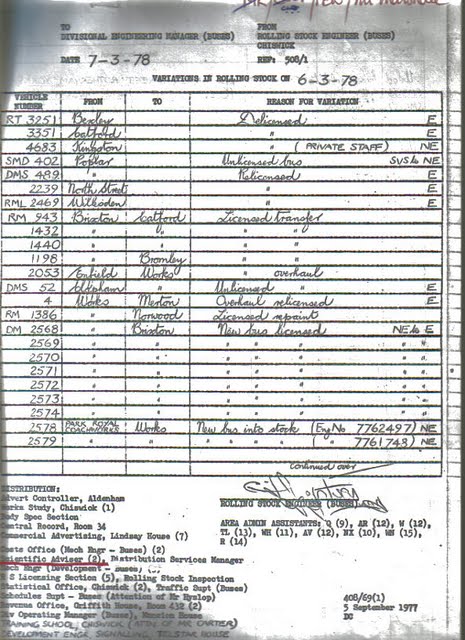 TO FROM
DIVISIONAL ENGINEERING MANAGER (BUSES) ROLLING STOCK ENGINEER (BUSES)
CHISWICK
DATE 7-3-78 REF: 508/1
VARIATIONS IN ROLLING STOCK ON 6-3-78
VEHICLE NUMBER FROM TO REASON FOR VARIATION
RT 3251 Bexley Delicensed E
3351 Catford " E
4683 Kingston " (PRIVATE STAFF) NE
SMD 402 Poplar Unlicensed bus SUS to NE
DMS 489 " Relicensed E
2239 North Street " E
RML 2469 Willesden " E
RM 943 Brixton Catford Licensed transfer
1432 " " " "
1440 " " " "
1198 " Bromley " "
2053 Enfield Works " overhaul
DMS 52 Elmers Unlicensed " E
4 Works Merton Overhaul relicensed E
RM 1386 " Norwood Licensed repaint
DM 2568 " Brixton New bus licensed NE to E
2569 " " " " " " " "
2570 " " " " " " " "
2571 " " " " " " " "
2572 " " " " " " " "
2573 " " " " " " " "
2574 " " " " " " " "
2578 PARK ROYAL COACHWORKS Works New bus into stock (Eng No 7762497) NE
2579 " " " " " " ( " 7761743) NE
continued over
DISTRIBUTION:
Advert Controller, Aldenham
Works Study, Chiswick (1)
Body Spec Section
Central Record, Room 34
Commercial Advertising, Lindsay House (7)
Costs Office (Mech Engr - Buses) (2)
Scientific Adviser (2), Distribution Services Manager
Mech Engr (Development - Buses)
R S Licensing Section (5), Rolling Stock Inspection
Statistical Office, Chiswick (2), Traffic Supt (Buses)
Schedules Supt - Buses (Attention of Mr Hyslop)
Revenue Office, Griffith House, Room 432 (2)
Div Operating Manager (Buses), Mansion House
TRAINING SCHOOL, CHISWICK (ATTN. OF MR CARTIER)
DEVELOPMENT ENGR. SIGNALLING, TELSTAR HOUSE
ROLLING STOCK ENGINEER (BUSES)
AREA ADMIN ASSISTANTS: Q (9), AR (12), W (12),
TL (13), WH (11), AV (12), NX (10), WN (15),
R (14)
408/69(1)
5 September 1977
DC